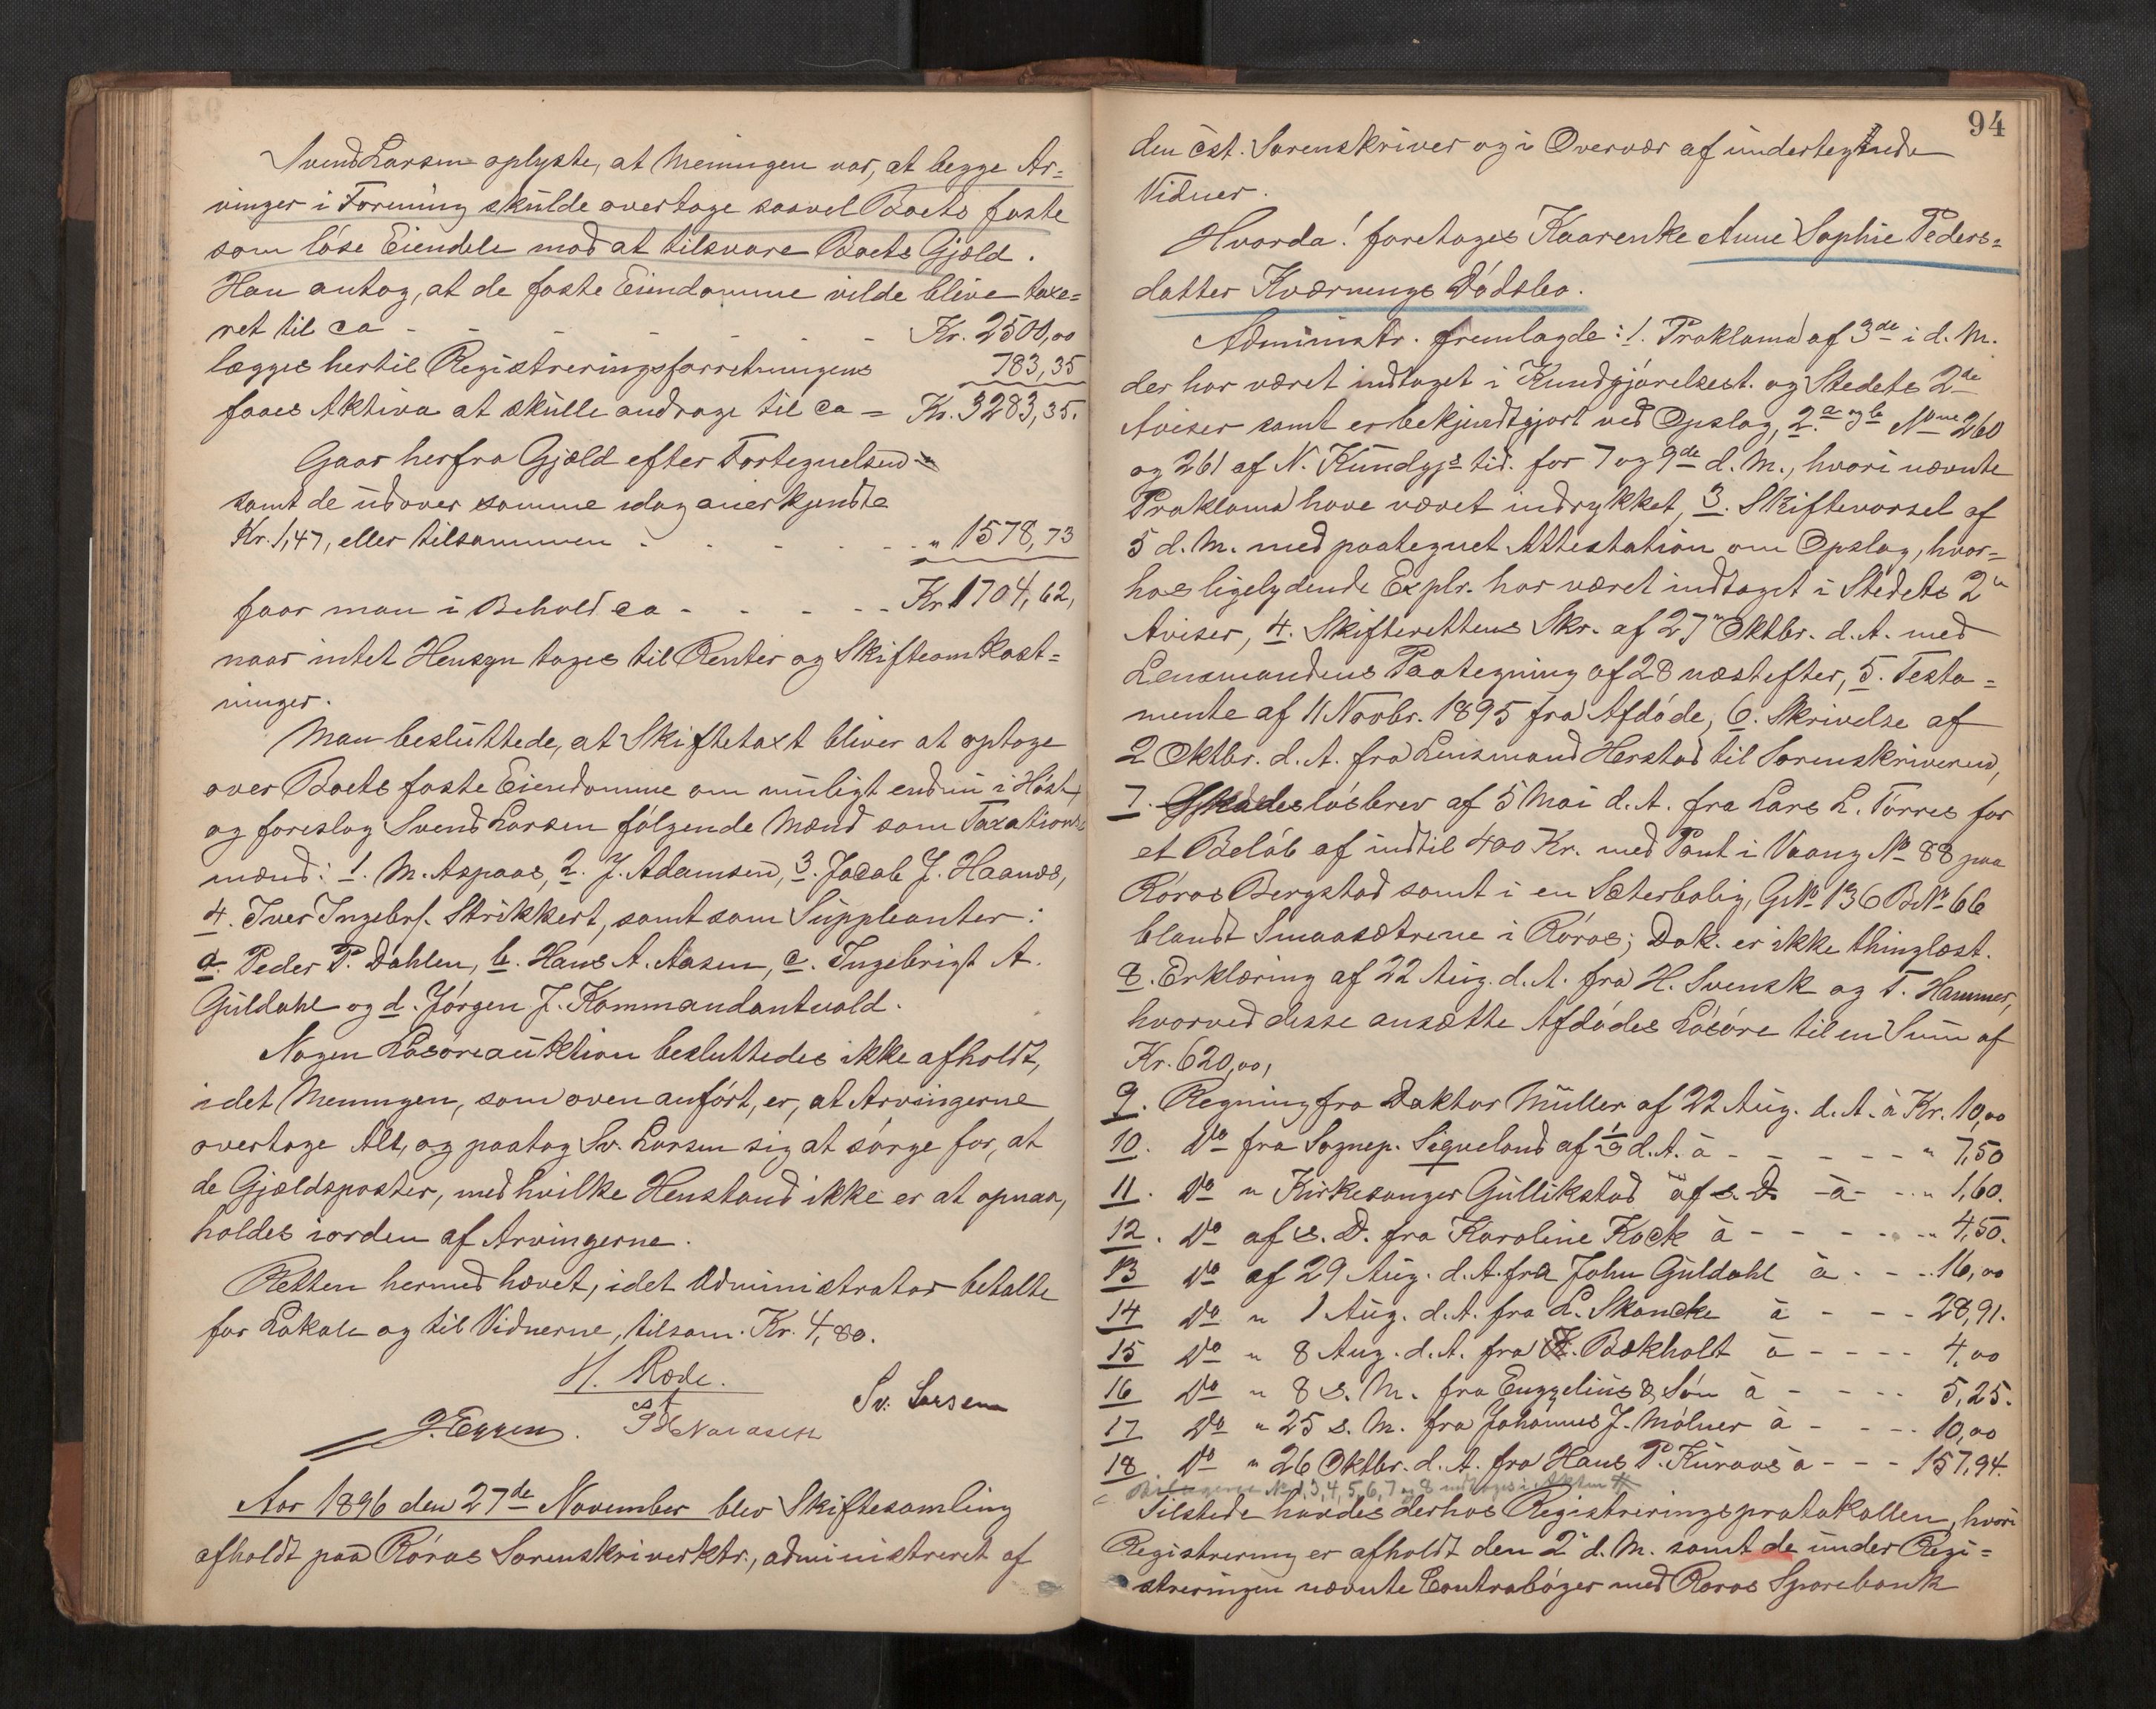 Svend Larsen oplyste, at Meningen var, at begge Ar=
vinger i Forening skulde overtage saavel Boets faste
som löse Eiendele mod at tilsvare Boets Gjæld.
Han antog, at de faste Eiendomme vilde blive taxe=
ret til ca - - - - - - Kr. 2500,00
lægges hertil Registreringsforretningens 783,35
faaes Aktiva at skulle andrage til ca = Kr. 3283,35.
Gaar herfra Gjæld efter Fortegnelsen
samt de udover samme idag anerkjendte
Kr. 1,47, eller tilsammen - - - - - - " 1578,73
faar man i Behold ca - - - - - Kr. 1704,62,
naar intet Hensyn tages til Renter og Skifteomkost=
ninger.
Man besluttede, at Skiftetaxt bliver at optage
over Boets faste Eiendomme om muligt endnu i Höst,
og foreslog Svend Larsen fölgende Mænd som Taxations
mænd: 1. M. Aspaas, 2. J. Adamsen, 3. Jacob J. Haanæs,
4. Iver Ingebr. Strikkert, samt som Suppleanter:
a. Peder P. Dahlen, b. Hans A. Aasen, c. Ingebrigt A.
Guldahl og d. Jörgen J. Kommandantvold.
Nogen Lösöreauktion besluttedes ikke afholdt,
idet Meningen, som oven anfört, er, at Arvingerne
overtage Alt, og paatog Sv. Larsen sig at sörge for, at
de Gjældsposter, med hvilke Henstand ikke er at opnaa,
holdes iorden af Arvingerne.
Retten hermed hævet, idet Administrator betalte
for Lokale og til Vidnerne, tilsam. Kr. 4,80.
H. Rode.
cst
Sv. Larsen
J. Eggen.
Aar 1896 den 27de November blev Skiftesamling
afholdt paa Röros Sorenskriverktr., administreret af
94
den cst. Sorenskriver og i Overvær af undertegnede
Vidner.
Hvorda! foretoges Kaarenke Anne Sophie Peders=
datter Kværnengs Dödsbo.
Administr. fremlagde: 1. Proklama af 3de i d. M.
der har været indtaget i Kundgjörelsest. og Stedets 2de
Aviser samt er bekjendtgjort ved Opslag, 2. a og b Nome 260
og 261 af N. Kundgjs tid. for 7 og 9de d. M., hvori nævnte
Proklama have været indrykket, 3. Skiftevarsel af
5 d. M. med paategnet Attestation om Opslag, hvor=
hos ligelydende Explr. har været indtaget i Stedets 2de
Aviser, 4. Skifterettens Skr. af 27 Oktbr. d. A. med
Lensmandens Paategning af 28 næstefter, 5. Testa=
mente af 11 Novbr. 1895 fra Afdöde, 6. Skrivelse af
2 Oktbr. d. A. fra Lensmand Herstad til Sorenskriveren,
7. Skadeslösbrev af 5 Mai d. A. fra Lars L. Torres for
et Belöb af indtil 400 Kr. med Pant i Vaang No 88 paa
Röros Bergstad samt i en Sæterbolig, GNo 136 BNo 66
blandt Smaasætrene i Röros; Dok. er ikke thinglæst.
8. Erklæring af 22 Aug. d. A. fra H. Svensk og T. Hammer,
hvorved disse ansætte Afdödes Lösöre til en Sum af
Kr. 620,00,
9. Regning fra Doktor Müller af 22 Aug. d. A. à Kr. 10,00
10. Do fra Sognep. Siqveland af 1/9 d. A. à - - - - - - " 7,50
11. Do " Kirkesanger Gullikstad af s. D. - à - - - " 1,60.
12. Do af s. D. fra Karoline Kock à - - - - - - " 4,50.
13 Do af 29 Aug. d. A. fra John Guldahl à - - - 16,00
14 Do " 1 Aug. d. A. fra L. Skancke à - - - 28,91.
15 Do " 8 Aug. d. A. fra Bækholt à - - - - 4,00
16 Do " 8 s. M. fra Engzelius & Sön à - - - - 5,25.
17 Do " 25 s. M. fra Johannes J. Mölner à - - - - 10,00
18 Do " 26 Oktbr. d. A. fra Hans P. Kuraas à - - - 157,94.
Bilagene No 1, 3, 4, 5, 6, 7 og 8 indtages i Akten #
Tilstede havdes derhos Registreringsprotokollen, hvori
Registrering er afholdt den 2 d. M. samt de under Regi=
streringen nævnte Contraböger med Röros Sparebank